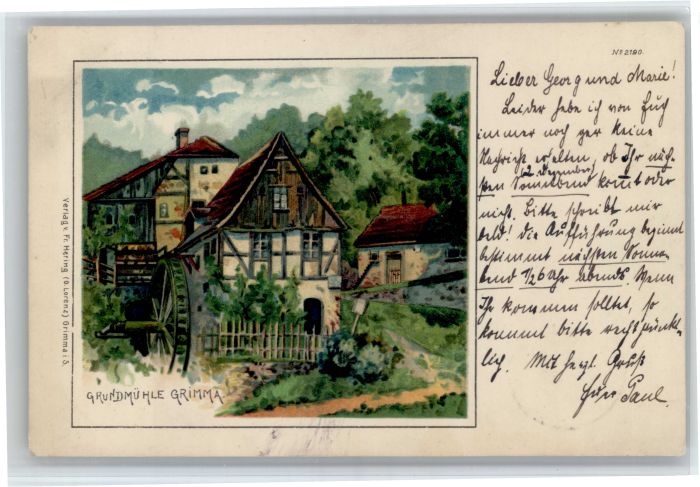 No 2190.
Lieber Georg und Marie!
Leider habe ich von Euch
immer noch gar keine
Nachricht erhalten, ob Ihr näch-
2. Dezember
sten Sonnabend kommt oder
nicht. Bitte schreibt mir
bald! Die Aufführung beginnt
bestimmt nächsten Sonna-
bend 1/2 6 Uhr abends. Wenn
Ihr kommen solltet, so
kommt bitte recht pünkt-
lich. Mit herzl. Gruß
Euer Paul.
GRUNDMÜHLE GRIMMA
Verlag v. Fr. Hering (O. Lorenz) Grimma i. S.